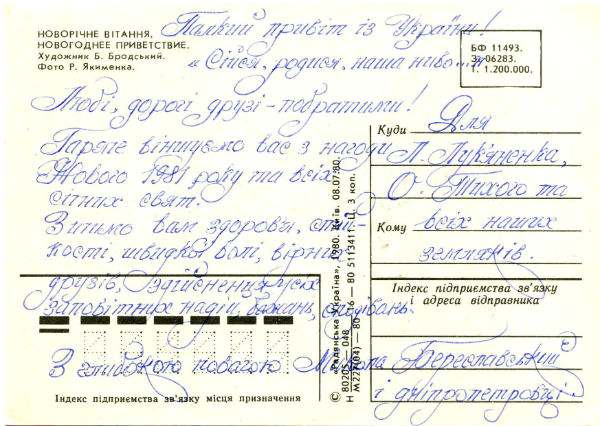 НОВОРІЧНЕ ВІТАННЯ.
НОВОГОДНЕЕ ПРИВЕТСТВИЕ.
Художник Б. Бродський.
Фото Р. Якименка.
Палкий привіт із України!
«Сійся, родися, наша ниво...»
БФ 11493.
З. 06283.
Т. 1.200.000.
Любі, дорогі друзі-побратими!
Гаряче віншуємо вас з нагоди
Нового 1981 року та всіх
січних свят.
Зичимо вам здоров'я, стій-
кості, швидкої волі, вірних
друзів, здійснення усіх
заповітних надій, бажань, сподівань.
З глибокою повагою Микола Береславський
і дніпропетровці.
Куди
Для
Л. Лук'яненка,
О. Тихого та
Кому
всіх наших
земляків.
Індекс підприємства зв'язку
і адреса відправника
Індекс підприємства зв'язку місця призначення
© «Радянська Україна», 1980. Київ. 08.07.80.
Н 80205—048 16—80 5113411. Ц. 3 коп.
М227(04)—80